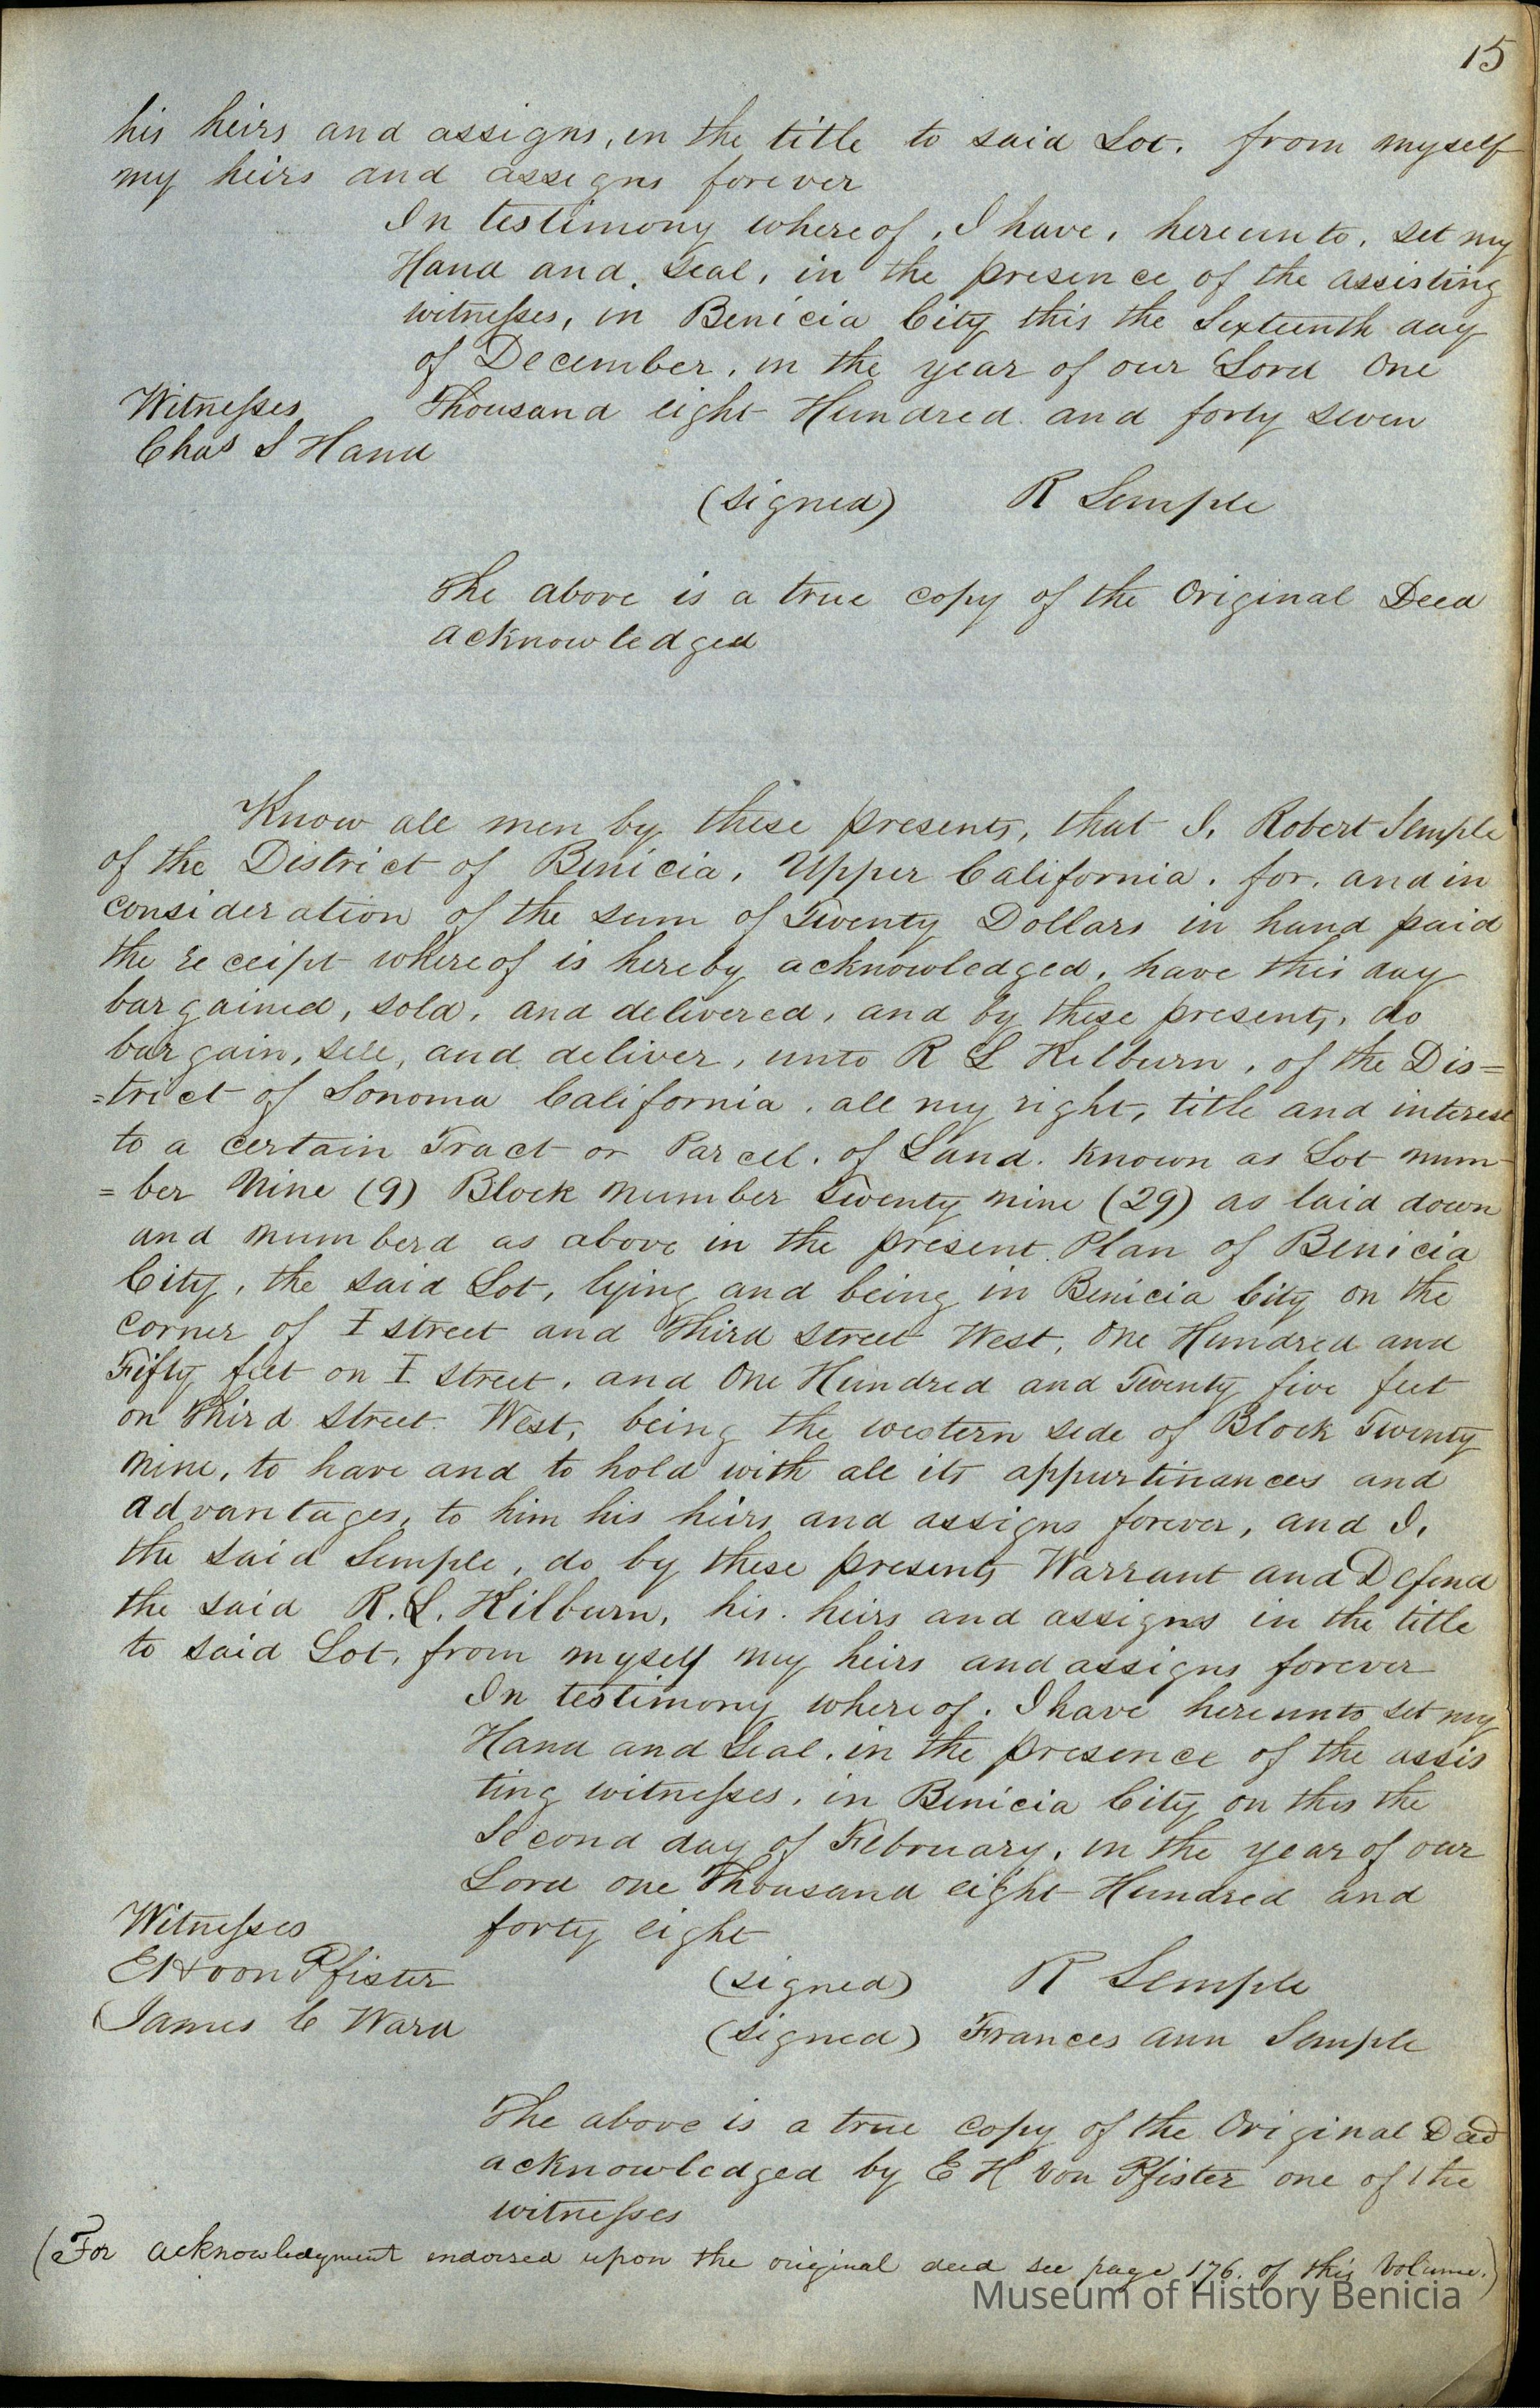 15
his heirs and assigns, in the title to said Lot. from myself
my heirs and assigns forever
In testimony whereof, I have, hereunto, set my
Hand and seal, in the presence of the assisting
witnesses, in Benicia City this the Sixteenth day
of December, in the year of our Lord One
Witnesses Thousand eight Hundred and forty seven
Chas S Hand
(signed) R Semple
The above is a true copy of the Original Deed
acknowledged
Know all men by these presents, that I, Robert Semple
of the District of Benicia, Upper California, for, and in
consideration of the sum of Twenty Dollars in hand paid
the receipt whereof is hereby acknowledged, have this day
bargained, sold, and delivered, and by these presents, do
bargain, sell, and deliver, unto R L Kilburn, of the Dis=
=trict of Sonoma California, all my right, title and interest
to a certain Tract or Parcel, of Land. Known as Lot num-
=ber Nine (9) Block number Twenty nine (29) as laid down
and numberd as above in the present Plan of Benicia
City, the said Lot, lying and being in Benicia City on the
corner of I street and Third street West, One Hundred and
Fifty feet on I street, and One Hundred and Twenty five feet
on Third street West, being the western side of Block Twenty
Nine, to have and to hold with all its appurtinances and
advantages, to him his heirs and assigns forever, and I,
the said Semple, do by these presents Warrant and Defend
the said R. L. Kilburn, his heirs and assigns in the title
to said Lot, from myself my heirs and assigns forever
In testimony whereof. I have hereunto set my
Hand and Seal, in the presence of the assis
ting witnesses, in Benicia City on this the
Second day of February, in the year of our
Lord one Thousand eight Hundred and
Witnesses forty eight
E H von Pfister (signed) R Semple
James C Ward (signed) Frances Ann Semple
The above is a true copy of the Original Deed
acknowledged by E H von Pfister one of the
witnesses
(For acknowledgment endorsed upon the original deed see page 176. of this Volume.)
Museum of History Benicia